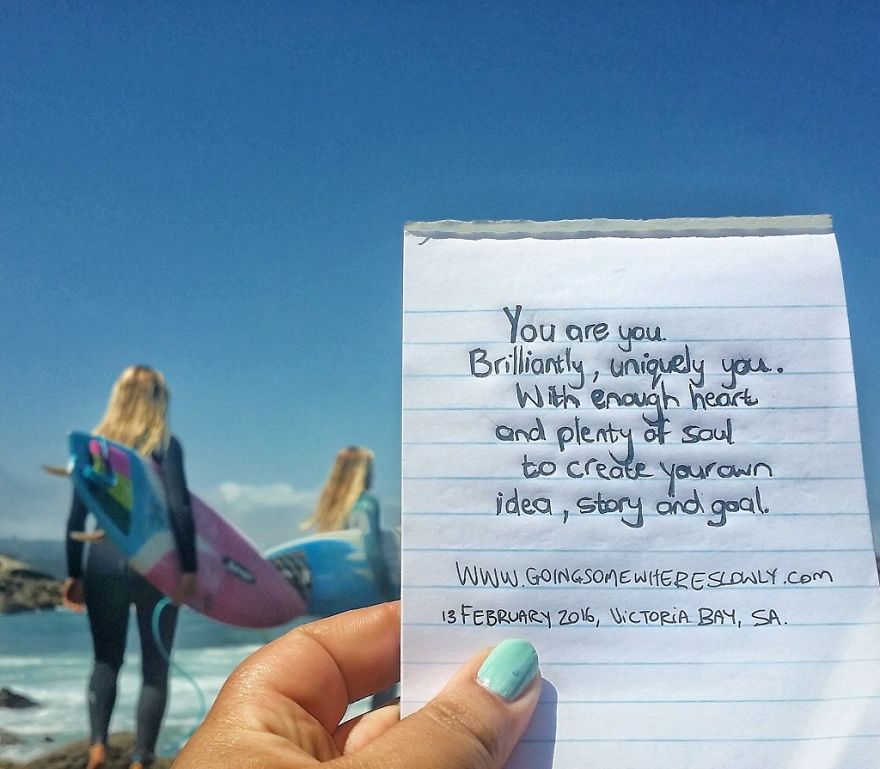 You are you.
Brilliantly, uniquely you.
With enough heart
and plenty of soul
to create your own
idea, story and goal.
WWW.GOINGSOMEWHERESLOWLY.com
13 FEBRUARY 2016, VICTORIA BAY, SA.